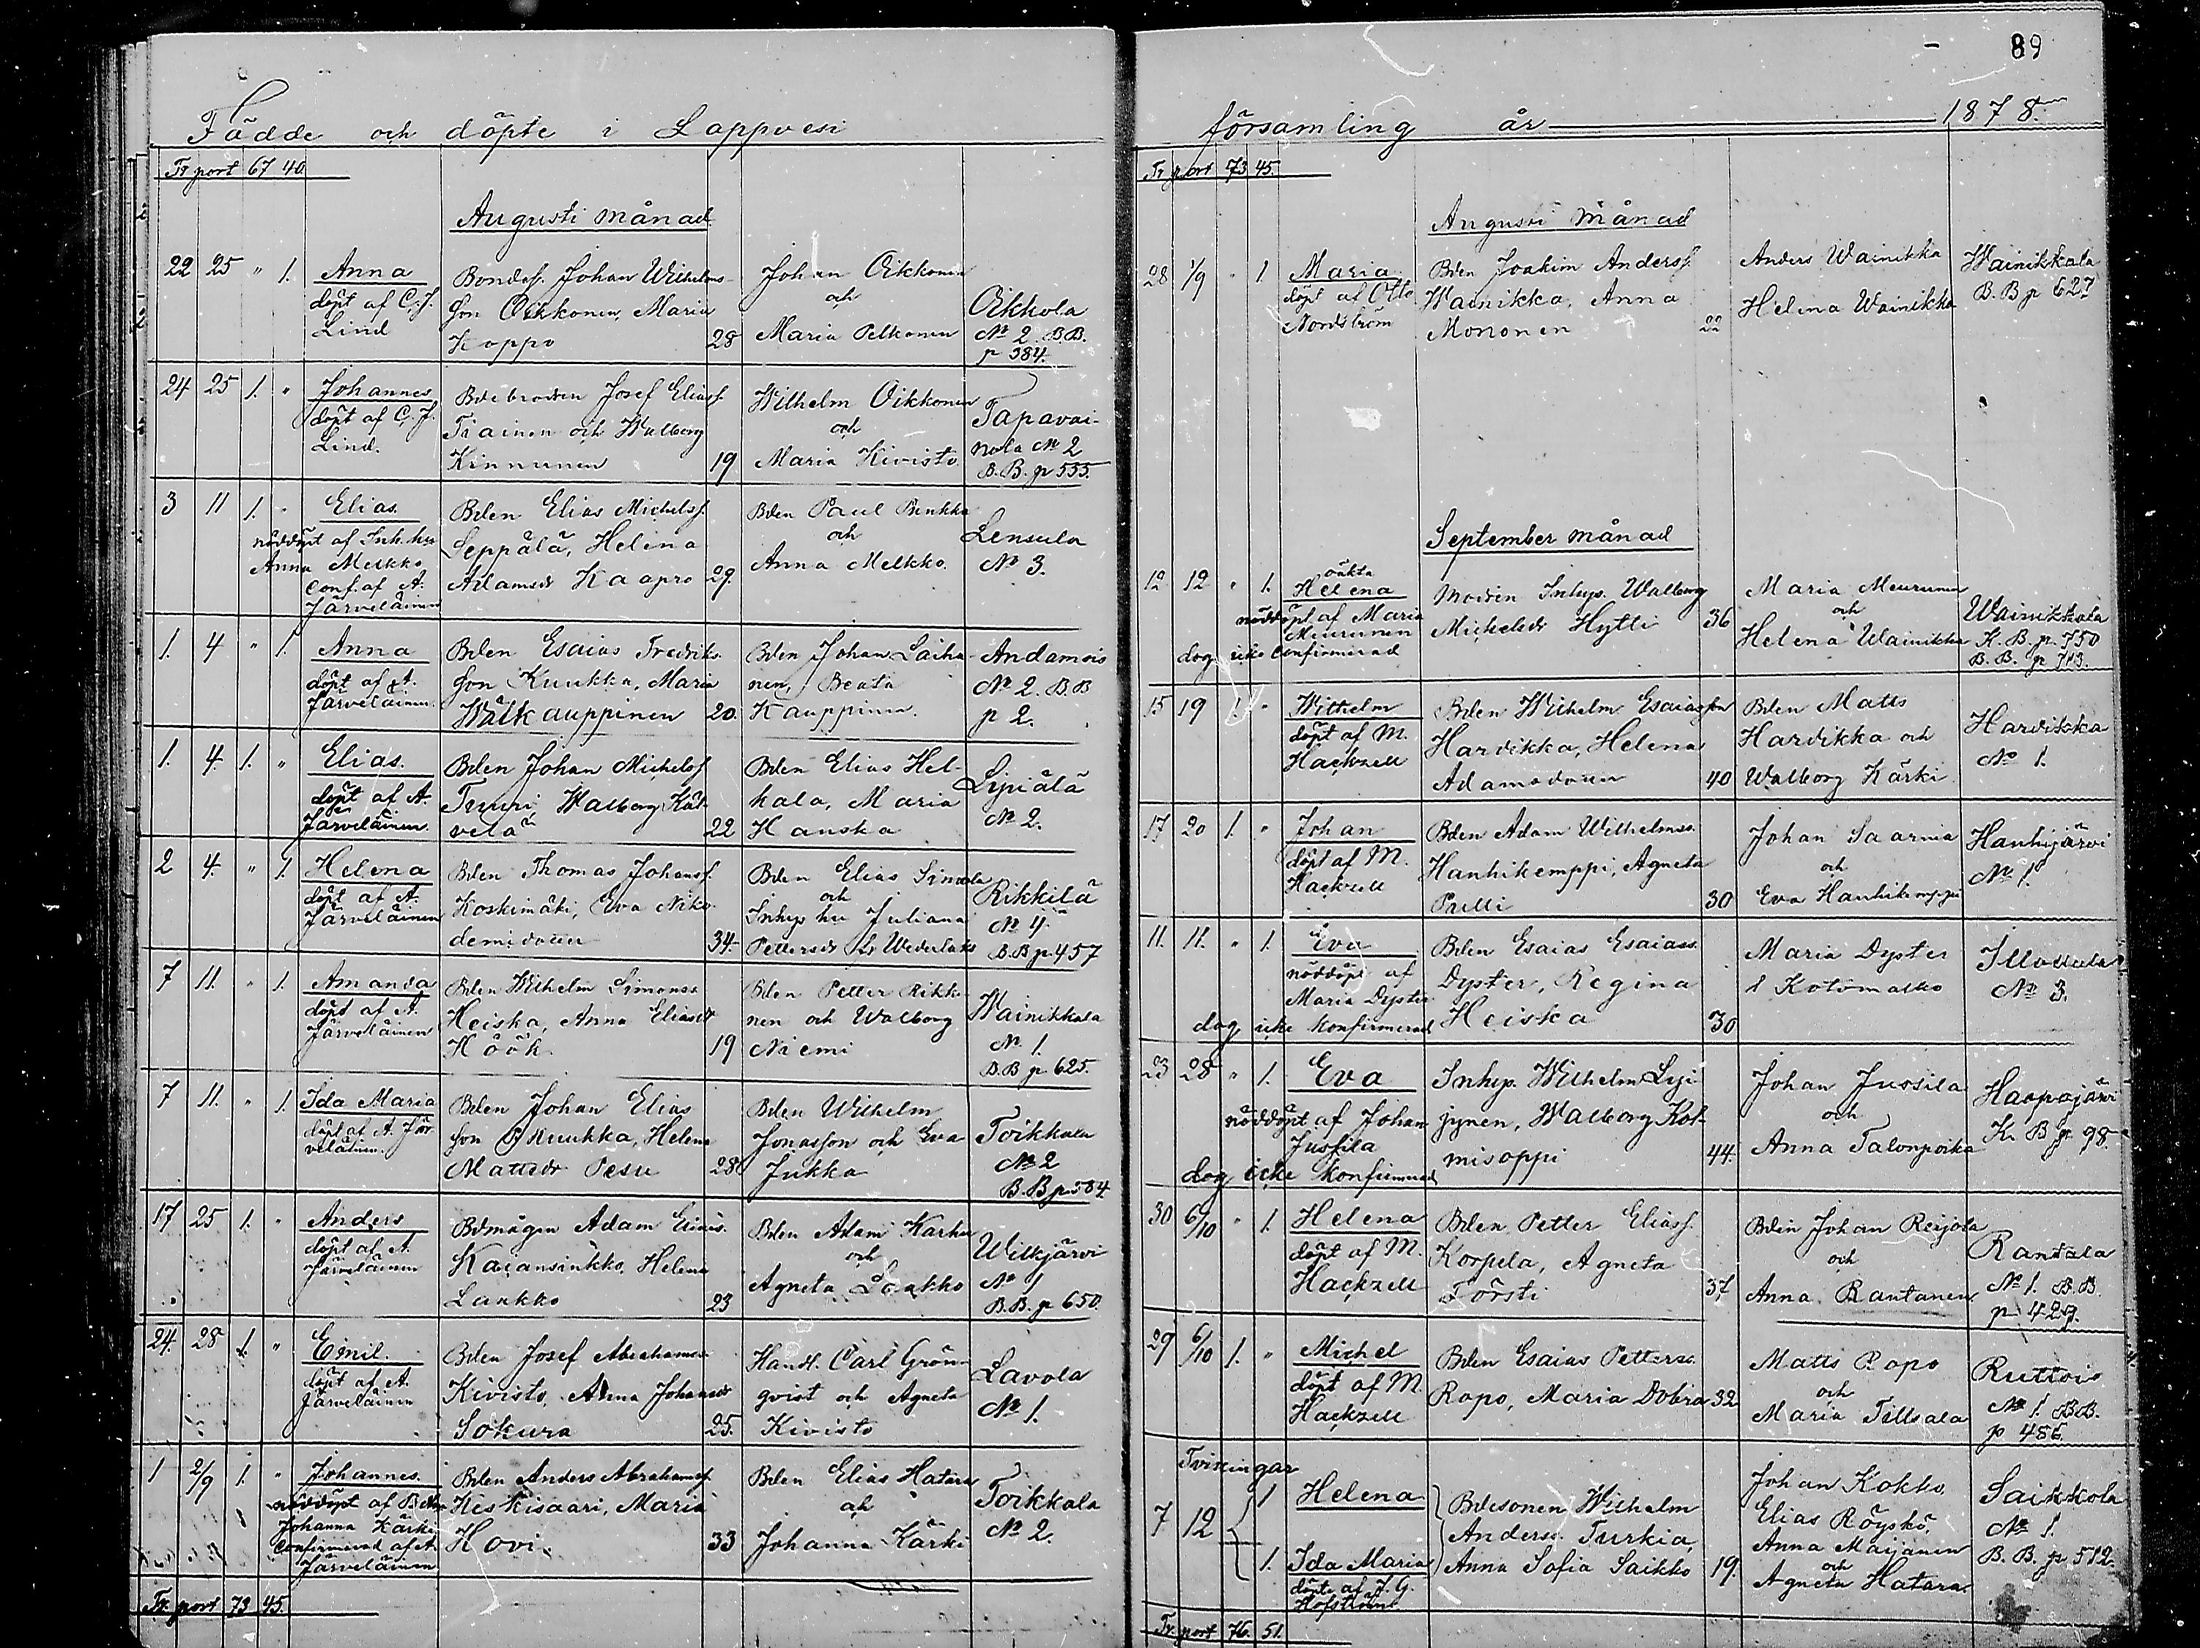 89
Födde och döpte i Lappvesi
församling år 1878.
Tr port 67 40
Augusti månad
22 25 " 1. Anna
döpt af C. J.
Lind
Bondes. Johan Wilhelms-
son Oikkonen, Maria
Koppo 28
Johan Oikkonen
och
Maria Pelkonen
Oikkola
No 2 B.B.
p 384.
24 25 1. " Johannes
döpt af C. J.
Lind.
Bdebrodren Josef Eliass.
Tiainen och Walborg
Kinnunen 19
Wilhelm Oikkonen
och
Maria Kivisto
Tapavai-
nola No 2
B.B. p 555.
3 11 1. " Elias
nöddöpt af Inh. hu
Anna Melkko
conf. af A.
Järveläinen
Bden Elias Michelss.
Seppälä, Helena
Adamsdr Kaapro 29.
Bden Paul Punkka
och
Anna Melkko.
Lensula
No 3.
1. 4 " 1. Anna
döpt af A.
Järveläinen.
Bden Esaias Fredriks-
son Kuukka, Maria
Wälkauppinen 20.
Bden Johan Laiha-
nen, Beata
Kauppinen.
Andamois
No 2. B.B
p 2.
1. 4. 1. " Elias.
döpt af A.
Järveläinen.
Bden Johan Michelss.
Tuuri Walborg Kät-
velä 22
Bden Elias Hel-
kala, Maria
Hanska
Lyijälä
No 2.
2 4. " 1. Helena
döpt af A.
Järveläinen
Bden Thomas Johanss.
Koskimäki, Eva Niko-
demidotter 34.
Bden Elias Simola
och
Inhys hu Juliana
Pettersdr fr Wederlaks
Rikkilä
No 4.
B.B p 457
7 11. " 1. Amanda
döpt af A.
Järveläinen
Bden Wilhelm Simonss.
Heiska, Anna Eliasdr
Höök 19
Bden Petter Rikko-
nen och Walborg
Niemi
Wainikkala
No 1.
B.B p 625.
7 11. " 1. Ida Maria
döpt af A. Jär
veläinen.
Bden Johan Elias
son Kuukka, Helena
Mattsdr Pesu 28
Bden Wilhelm
Jonasson och Eva
Jukka
Toikkala
No 2
B.B p 584
17 25 1. " Anders
döpt af A.
Järveläinen
Bdmågen Adam Eliass.
Kaiansinkko, Helena
Lankko 23
Bden Adam Karhu
och
Agneta Loukko
Wilkjärvi
No 1
B.B. p 650.
24. 28 1. " Emil.
döpt af A.
Järveläinen
Bden Josef Abrahamss.
Kivisto, Anna Johansdr
Sokura 25.
Handl. Carl Grön-
qvist och Agneta
Kivisto
Lavola
No 1.
1 2/9 1. " Johannes.
nöddöpt af Bden
Johanna Kärki
Confirmerad af A.
Järveläinen
Bden Anders Abrahamss.
Keskisaari, Maria
Hovi. 33
Bden Elias Hatara
och
Johanna Kärki
Toikkala
No 2.
Tr. port 73 45.
Tr port 73 45.
Augusti månad
28 1/9 " 1 Maria
döpt af Otto
Nordström
Bden Joakim Anderss.
Wainikka, Anna
Mononen 22
Anders Wainikka
Helena Wainikka
Wainikkala
B.B p 627
September månad
12 12 " 1. oäkta
Helena
nöddöpt af Maria
Meurunen
dog icke confirmerad
Modren Inhys. Walborg
Michelsdr Hytti 36
Maria Meurunen
och
Helena Wainikka
Wainikkala
K. B. p. 750
B. B. p 713.
15 19 1. " Wilhelm
döpt af M.
Hackzell
Bden Wilhelm Esaiasson
Hardikka, Helena
Adamsdotter 40
Bden Matts
Hardikka och
Walborg Kärki
Hardikka
No 1.
17 20 1. " Johan
döpt af M.
Hackzell
Bden Adam Wilhelmss.
Hanhikemppi, Agneta
Pulli 30
Johan Saarnia
och
Eva Hanhikemppi
Hanhijärvi
No 1.
11. 11. " 1. Eva
nöddöpt af
Maria Dyster
dog icke konfirmerad
Bden Esaias Esaiass.
Dyster, Regina
Heiska 30
Maria Dyster
f Kotimatko
Illoula
No 3.
23 28 " 1. Eva
nöddöpt af Johan
Jussila
dog icke konfirmerad
Inhys. Wilhelm Lyi-
jynen, Walborg Kol-
misoppi 44.
Johan Jussila
och
Anna Talonpoika
Haapajärvi
K. B p. 98.
30 6/10 " 1. Helena
döpt af M.
Hackzell
Bden Petter Eliass.
Korpela, Agneta
Törsti 37
Bden Johan Reijola
och
Anna Rantanen
Rantala
No 1. B.B.
p 429.
29 6/10 1. " Michel
döpt af M
Hackzell
Bden Esaias Petterss.
Rapo, Maria Dobra 32
Matts Rapo
och
Maria Tillsala
Ruttois
No 1 B.B.
p 456.
Tvillingar
7 12 1 Helena
1. Ida Maria
döpta af J. G.
Hofström
Bdesonen Wilhelm
Anderss. Turkia,
Anna Sofia Saikko 19.
Johan Kokko
Elias Röyskö,
Anna Maijanen
och
Agneta Hatara.
Saikkola
No 1.
B. B. p 512.
Tr. port 76. 51.